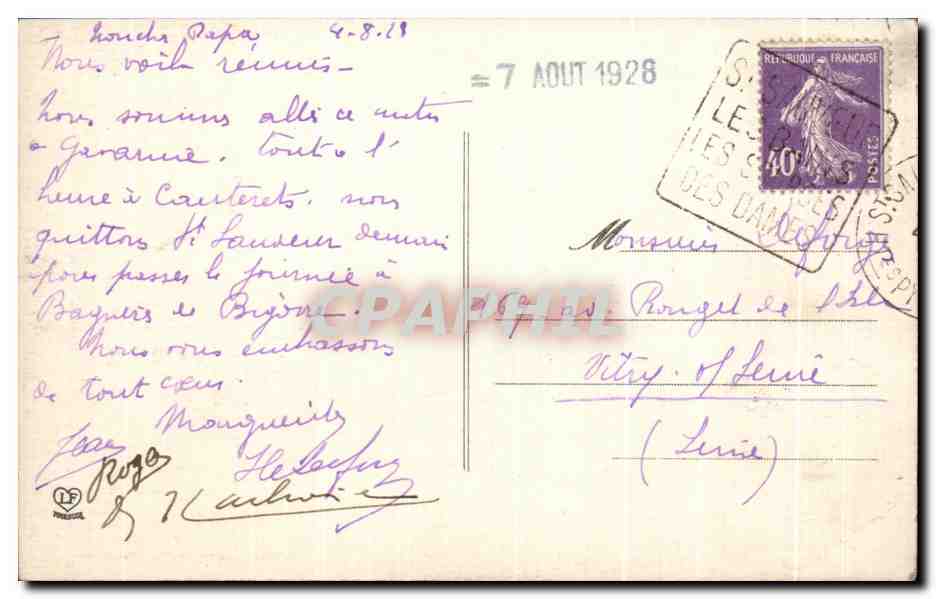 4-8-28
Nous voilà réunis -
Nous sommes allé ce matin
à Gavarnie. Tout à l'
heure à Cauterets. nous
quittons St Sauveur demain
pour passer la journée à
Bagnères de Bigorre.
Nous vous embrassons
de tout cœur.
Marguerite
Jean
Roger
LF
= 7 AOUT 1928
REPUBLIQUE FRANÇAISE
40c
POSTES
ST SAUVEUR
LES BAINS
LES
DES DAMES
ST SAU
Monsieur Leforge
167 av. Rouget de l'Isle
Vitry s/ Seine
(Seine)
CPAPHIL